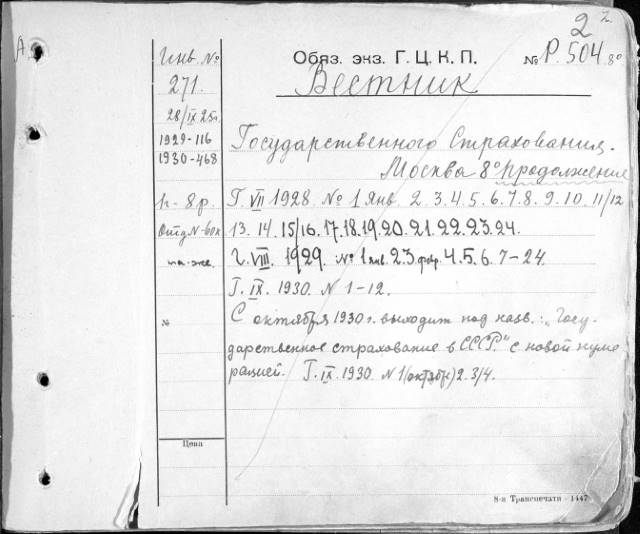 2 2
Инв. №
271.
28/IX 25г.
1929-116
1930-468
к- 8 р.
№
Цена
Обяз. экз. Г. Ц. К. П.
№ Р. 504. 8°
Вестник
Государственного Страхования.
Москва 8° продолжение
Г. VII 1928. № 1 янв. 2. 3. 4. 5. 6. 7. 8. 9. 10. 11/12
13. 14. 15/16. 17. 18. 19. 20. 21. 22. 23. 24.
Г. VIII. 1929. № 1 янв. 2 3 февр. 4. 5. 6. 7-24.
Г. IX. 1930. N 1-12.
С октября 1930 г. выходит под назв.: „Госу-
дарственное страхование в СССР." с новой нуме
рацией. Г. IX. 1930. N 1 (октябрь) 2. 3/4.
8-я Транспечати - 1447